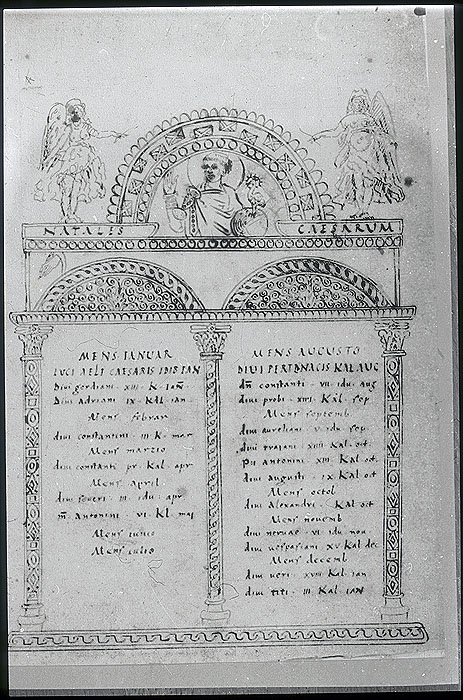 NATALES CAESARUM
MENS IANUAR
LUCI AELI CAESARIS IDIB IAN
Divi gordiani · XIII · K · ian
Divi Adriani · IX · KAL · ian
Mens februar
divi constantini · III K · mar
Mens martio
divi constanti pr · Kal · apr
Mens April
divi severi · III · idu · apr
m̄ · Antonini · VI · Kl · mai
Mens iunio
Mens iulio
MENS AUGUSTO
DIVI PERTINACIS KAL AUG
dñ constanti · VII · idu · aug
divi probi · XIIII · Kal · sep
Mens septemb
divi aureliani · V · idu · sep
divi traiani · XIIII · Kal · oct
pii antonini · XIII · Kal · oct
divi augusti · IX · Kal · oct
Mens octob
divi Alexandri · Kal · oct
Mens novemb
divi nervae · VI · idu · nov
divi vespasiani · XV Kal dec
Mens decemb
divi veri · XVIII · Kal · ian
divi titi · III · Kal · ian